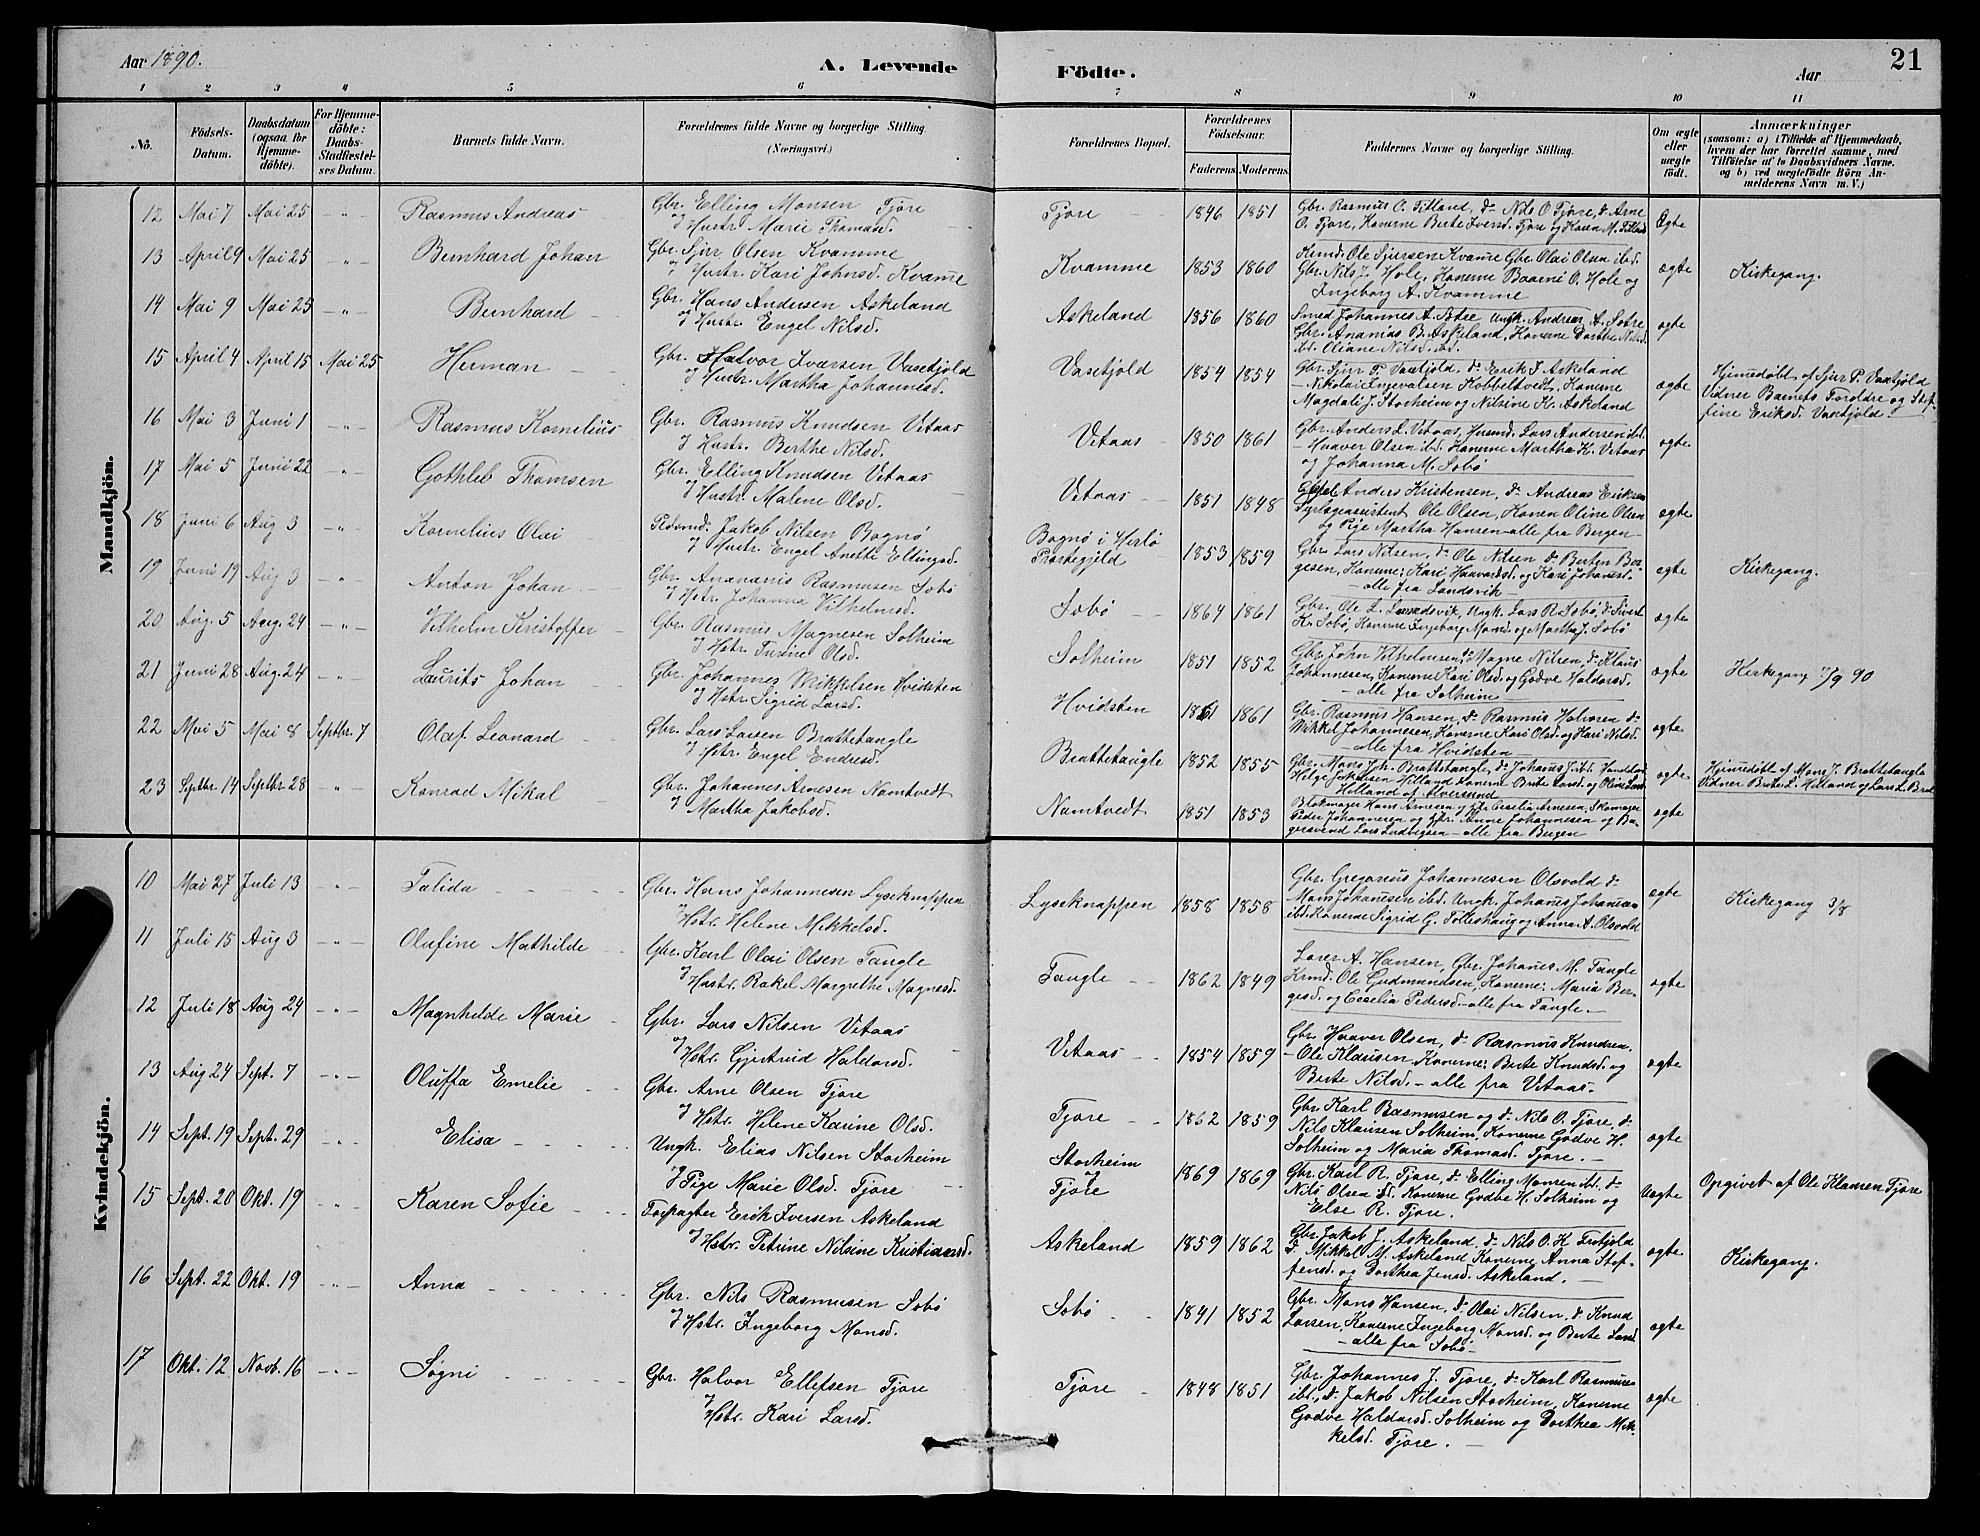 Aar 1890.
A. Levende
Födte.
Aar
21
1 2 3 4 5 6 7 8 9 10 11
No.
Födsels-
Datum.
Daabsdatum
(ogsaa for
Hjemme-
döbte).
For Hjemme-
döbte:
Daabs-
Stadfæstel-
ses Datum.
Barnets fulde Navn.
Forældrenes fulde Navne og borgerlige Stilling.
(Næringsvei.)
Forældrenes Bopæl.
Forældrenes
Födselsaar.
Faderens Moderens
Faddernes Navne og borgerlige Stilling.
Om ægte
eller
uægte
födt.
Anmærkninger
(saasom: a) i Tilfælde af Hjemmedaab,
hvem der har forrettet samme, med
Tilföielse af to Daabsvidners Navne.
og b) ved uægtefödte Börn An-
melderens Navn m. V.)
Mandkjön.
12 Mai 7 Mai 25 -"- Rasmus Andreas
Gbr. Elling Monsen Tjore
og Hustr. Marie Thomasd.
Tjore 1846 1851
Gbr. Rasmus O. Titland, do Nils O Tjore, do Arne
O. Tjore, Konerne Berte Iversd. Tjore og Karen M. Titland
Ægte
13 April 9 Mai 25 -"- Bernhard Johan
Gbr. Sjur Olsen Kvamme
og Hustr. Kari Johnsd. Kvame
Kvamme 1853 1860
Ole Sjursen Kvame Gbr. Olai Olsen ibd.
Gbr. Nils J. Hole, Konerne O. Hole og
Ingeborg A. Kvamme
ægte Kirkegang.
14 Mai 9 Mai 25 -"- Bernhard
Gbr. Hans Andersen Askeland
og Hustr. Engel Nilsd.
Askeland 1856 1860
Smed Johannes A. Ungk. Andreas A. Sotre
Gbr. Ananias B. Askeland, Konerne Dorthe Nilsd.
ibd. Oliane Nilsd. ibd.
ægte
15 April 4 April 15 Mai 25 Herman
Gbr. Halvor Iversen Vasetjold
og Hustr. Martha Johannesd.
Vasetjold 1854 1854
Gbr. Sjur P. Vasetjold, do Erik I Askeland
- Nikolai Ingevalsen Kobbeltvedt, Konerne
Magdali J. Storheim og Nilsine K. Askeland
ægte
Hjemmedøbt af Sjur P. Vasetjold
Vidner Barnets Foreldre og Stef-
fine Eriksd. Vasetjold.
16 Mai 3 Juni 1 -"- Rasmus Kornelius
Gbr. Rasmus Knudsen Vetaas
og Hustr. Berthe Nilsd.
Vetaas 1850 1861
Gbr. Anders L. Vetaas, Husmd. Lars Andersen ibd.
- Haaver Olsen ibd. Konerne Martha K. Vetaas
og Johanna M. Sobø
ægte
17 Mai 5 Juni 22 -"- Gothleb Thomsen
Gbr. Elling Knudsen Vetaas
og Hustr. Malene Olsd.
Vetaas 1851 1848
Anders Kristensen, do Andreas Eriksen
Ole Olsen, Konen Oline Olsen
og Pige Martha Hansen - alle fra Bergen -
ægte
18 Juni 6 Aug 3 -"- Kornelius Olai
Jakob Nilsen Bognø
og Hustr. Engel Anette Ellingsd.
Bognø i Herlø
Præstegjeld
1853 1859
Gbr. Lars Nilsen, do Ole Nilsen do Berten Ber-
gesen, Konerne: Kari Haavardsd. og Kari Johansd.
- alle fra Landsvik -
ægte Kirkegang.
19 Juni 19 Aug 3 -"- Anton Johan
Gbr. Ananias Rasmusen Sobø
og Hstr. Johanna Vilhelmsd.
Sobø 1864 1861
Gbr. Ole L. Landsvik, Ungk. Lars R. Sobø, do Sivert
K. Sobø, Konerne Ingeborg Monsd. og Martha J. Sobø
ægte
20 Aug. 5 Aug. 24 -"- Vilhelm Kristoffer
Gbr. Rasmus Magnesen Solheim
og Hstr. Turine Olsd.
Solheim 1851 1852
Gbr. John Vilhelmsen, do Magne Nilsen, do Klaus
Johannesen, Konerne Kari Olsd. og Godve Haldorsd.
- alle fra Solheim -
ægte Kirkegang 7/9 90
21 Juni 28 Aug. 24 -"- Laurits Johan
Gbr. Johannes Mikkelsen Hvidsten
og Hstr. Sigrid Larsd.
Hvidsten 1861 1861
Gbr. Rasmus Hansen, do Rasmus Halvorsen do
Mikkel Johannesen, Konerne Kari Olsd. og Kari Nilsd.
- alle fra Hvidsten -
ægte
22 Mai 5 Mai 8 Septbr. 7 Olaf Leonard
Gbr. Lars Larsen Brattetangle
og Hstr. Engel Endresd.
Brattetangle 1852 1855
Gbr. Mons Joh. Brattetangle, do Johannes J. ibd.
Helge Jakobsen Hilland Konerne Brite Larsd. og Oline Larsd.
Hilland af Alversund
ægte
Hjemmedøbt af Mons J. Brattetangle
Vidner Brite L. Hilland og Lars L. Brat.
23 Septbr. 14 Septbr. 28 -"- Konrad Mikal
Gbr. Johannes Arnesen Namtvedt
og Martha Jakobsd.
Namtvedt 1851 1853
Blokmager Hans Arnesen og Hstr. Ceselia Arnesen, Skomager
Peder Johannesen og Hstr. Anne Johannesen og Ba-
gersvend Lars Ludvigsen - alle fra Bergen
ægte
Kvindekjön.
10 Mai 27 Juli 13 -"- Talida
Gbr. Hans Johannesen Lyseknappen
og Hstr. Helene Mikkelsd.
Lyseknappen 1858 1858
Gbr. Gregorius Johannesen Olsvold do
Mons Johannesen ibd. Ungk. Johannes Johannesen
ibd. Konerne Sigrid G. Solleshaug og Anna A. Olsvold
ægte Kirkegang 3/8
11 Juli 15 Aug 3 -"- Olufine Mathilde
Gbr. Karl Olai Olsen Tangle
og Hustr. Rakel Margrethe Magnesd.
Tangle 1862 1849
Lærer A. Hansen, Gbr. Johanes M. Tangle
Ole Gudmundsen, Konerne: Maria Ber-
gesd. og Ceselia Pedersd. - alle fra Tangle. -
ægte
12 Juli 18 Aug 24 -"- Magnhilde Marie
Gbr. Lars Nilsen Vetaas
og Hstr. Gjertrud Haldorsd.
Vetaas 1854 1859
Gbr. Haaver Olsen, do Rasmus Knudsen.
- Ole Klausen, Konerne: Berte Knudsd. og
Berte Nilsd. - alle fra Vetaas -
ægte
13 Aug 24 Sept. 7 -"- Oluffa Emelie
Gbr. Arne Olsen Tjore
og Hstr. Helene Karine Olsd.
Tjore 1862 1859
Gbr. Karl Rasmusen og do Nils O. Tjore, do
Nils Klausen Solheim, Konerne Godve H.
Solheim og Maria Thomasd. Tjore. -
ægte
14 Sept. 19 Sept. 29 -"- Elisa
Ungk. Elias Nilsen Storheim
og Pige Marie Olsd. Tjore
Storheim
og
Tjore
1869 1869
Gbr. Karl R. Tjore, do Elling Monsen ibd. do
Nils Olsen ibd. Konerne Godve H. Solheim og
Else R. Tjore.
Uægte Opgivet af Ole Klausen Tjore
15 Sept. 20 Okt. 19 -"- Karen Sofie
Forpagter Erik Iversen Askeland
og Hstr. Petrine Nilsine Kristiansd.
Askeland 1859 1862
Gbr. Jakob J. Askeland, do Nils O. H.
do Mikkel M. Askeland Konerne Anna Stef-
fensd. og Dorthea Jensd. Askeland. -
ægte Kirkegang.
16 Sept. 22 Okt. 19 -"- Anna
Gbr. Nils Rasmusen Sobø
og Hstr. Ingeborg Monsd.
Sobø 1841 1852
Gbr. Mons Hansen, do Olai Nilsen, do Knud
Larsen, Konerne Ingeborg Monsd. og Berte Larsd
- alle fra Sobø -
ægte
17 Okt. 12 Novb. 16 -"- Søgni
Gbr. Halvor Ellefsen Tjore
og Hstr. Kari Larsd.
Tjore 1848 1851
Gbr. Johannes J. Tjore, do Karl Rasmusen
ibd., do Jakob Nilsen Storheim, Konerne
Godve Haldorsd. Solheim og Dorthea Mik-
kelsd. Tjore. -
ægte